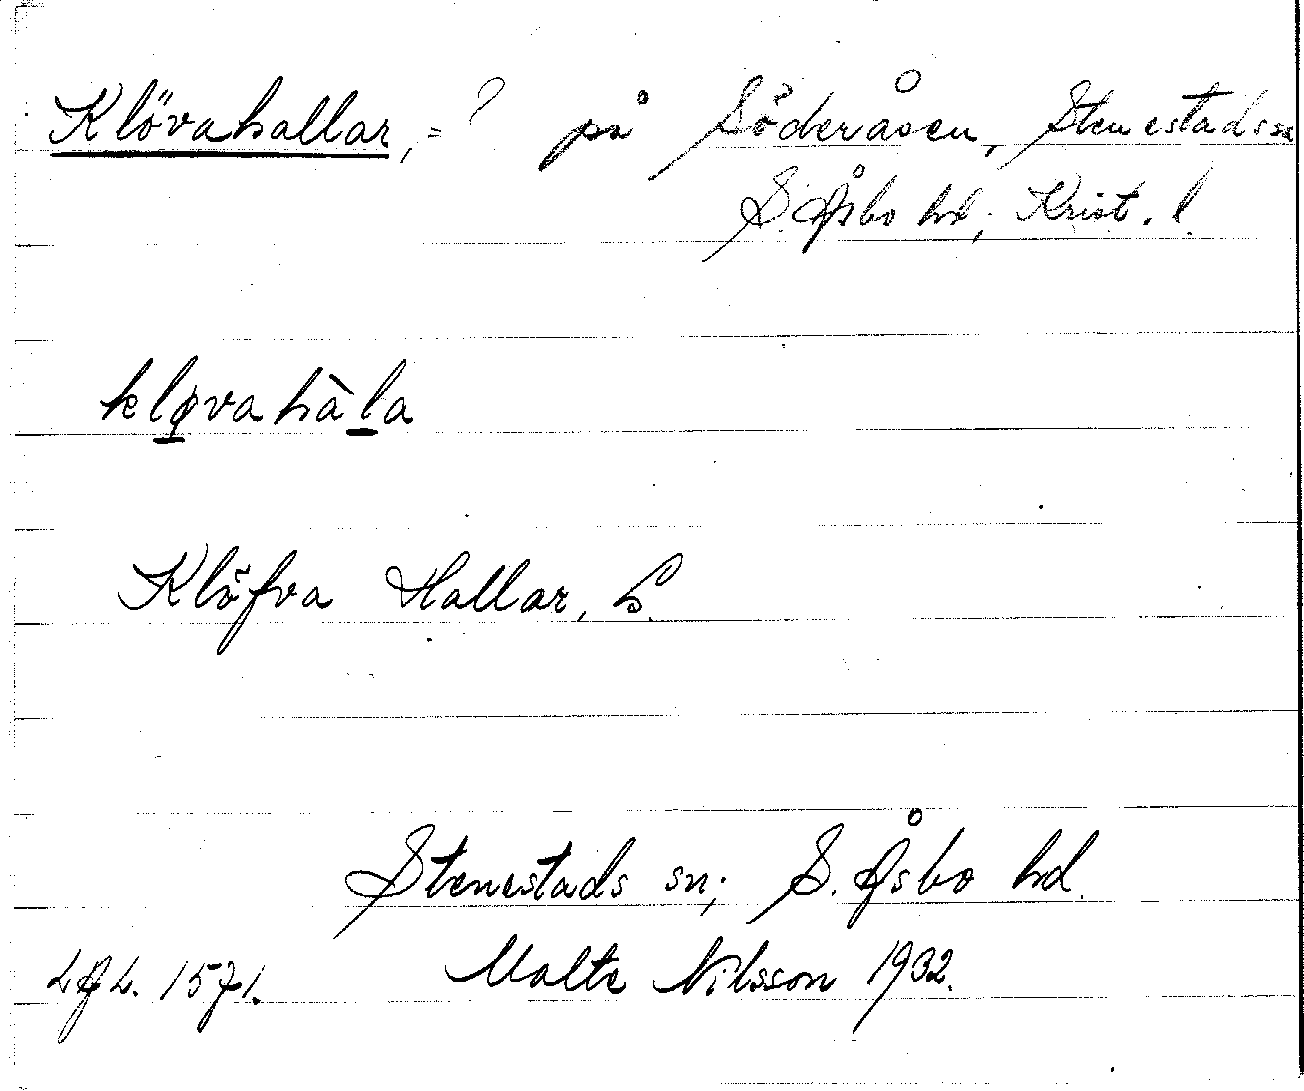 Klövahallar, = ? på Söderåsen, Stenestads sn
S. Åsbo hd; Krist. l.
kløvahàla
Klöfva Hallar,
Stenestads sn; S. Åsbo hd.
1571. Malte Nilsson 1932.